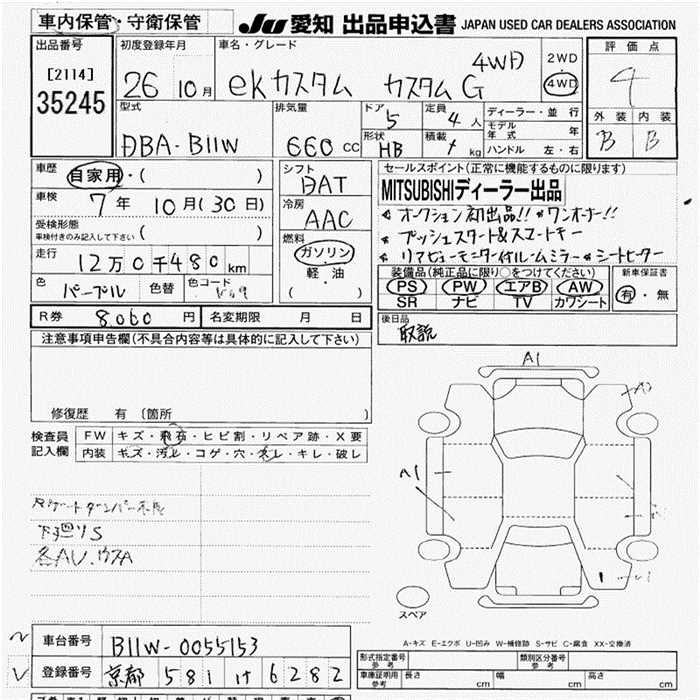 車内保管・守衛保管
JU 愛知 出品申込書 JAPAN USED CAR DEALERS ASSOCIATION
出品番号
[2114]
35245
初度登録年月
26 10月
車名・グレード
ekカスタム カスタムG 4WD
2WD
・
4WD
評価点
4
外装 内装
B B
型式
DBA-B11W
排気量
660 cc
ドア
5
定員
4 人
形状
HB
積載
kg
ディーラー・並行
モデル年式 年
ハンドル 左・右
車歴
自家用・( )
車検
7年 10月(30日)
受検形態
車検付きのみ記入して下さい( )
走行
12万0千480km
色
パープル
色替
色コード
シフト
DAT
冷房
AAC
燃料
ガソリン
・
軽・油
( )
セールスポイント(正常に機能するものに限ります)
MITSUBISHIディーラー出品
オークション初出品!! ワンオーナー!!
プッシュスタート&スマートキー
リヤビューモニター付ルームミラー シートヒーター
装備品(純正品に限り○をつけてください)
PS PW エアB AW
SR ナビ TV カワシート
新車保証書
有・無
R券 8,060円
名変期限 月 日
後日品
取説
注意事項申告欄(不具合内容等は具体的に記入して下さい)
修復歴 有 (箇所 )
検査員
記入欄
FW キズ・飛石・ヒビ割・リペア跡・X要
内装 キズ・汚レ・コゲ・穴・スレ・キレ・破レ
下廻りS
各AU.ウスA
A1
A1
スペア
車台番号
B11W-0055153
登録番号
京都 581 け 6282
A-キズ E-エクボ U-凹み W-補修跡 S-サビ C-腐食 XX-交換済
形式指定番号
参考
類別区分番号
参考
車庫証明用
参考
長さ cm
幅 cm
高さ cm